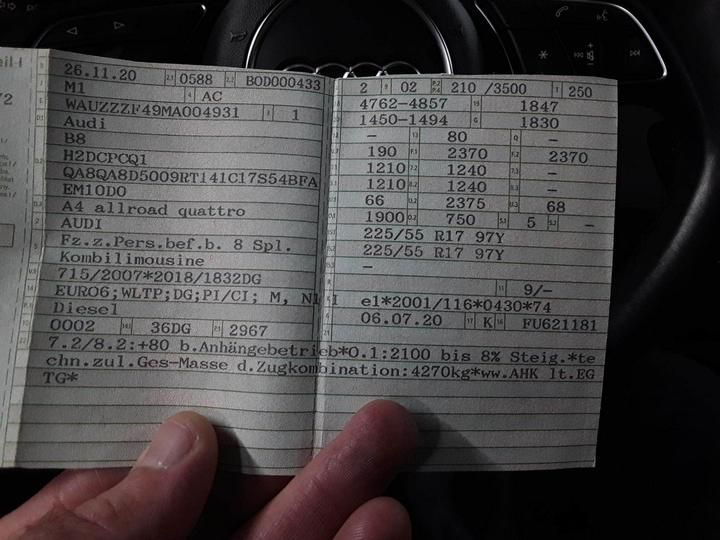 26.11.20 0588 BOD000433
M1 AC
WAUZZZF49MA004931 1
Audi
B8
H2DCPCQ1
QA8QA8D5009RT141C17S54BFA
EM10D0
A4 allroad quattro
AUDI
Fz.z.Pers.bef.b. 8 Spl.
Kombilimousine
715/2007*2018/1832DG
EURO6;WLTP;DG;PI/CI; M, N1 I
Diesel
0002 36DG 2967
2 02 210 /3500 250
4762-4857 1847
1450-1494 1830
– 80 –
190 2370 2370
1210 1240 –
1210 1240 –
66 2375 68
1900 750 5 –
225/55 R17 97Y
225/55 R17 97Y
–
9/–
e1*2001/116*0430*74
06.07.20 K FU621181
7.2/8.2:+80 b.Anhängebetrieb*O.1:2100 bis 8% Steig.*te
chn.zul.Ges-Masse d.Zugkombination:4270kg*ww.AHK lt.EG
TG*